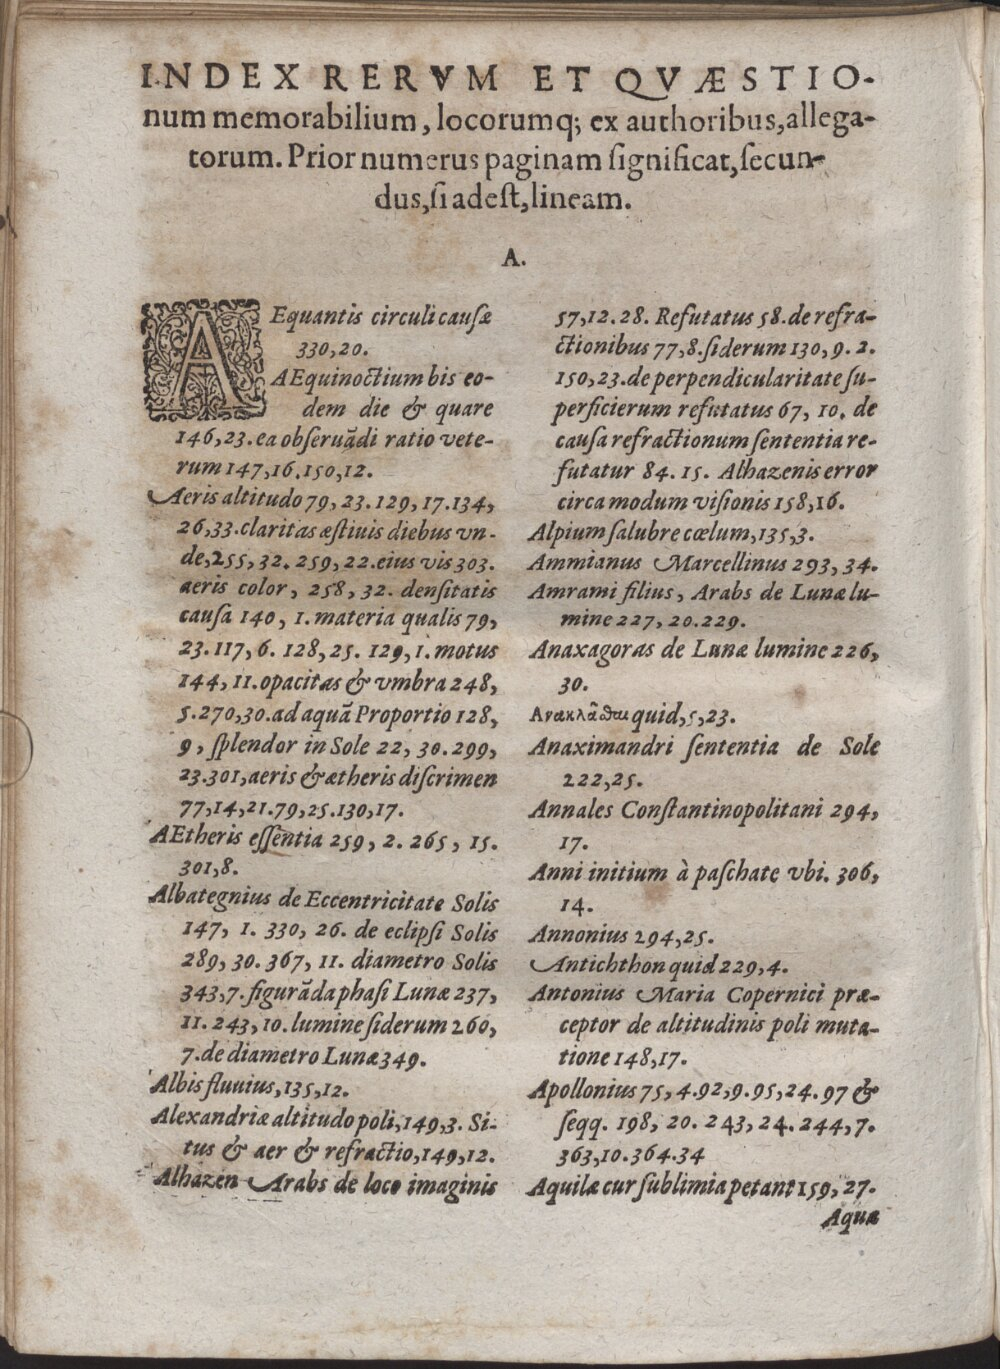 INDEX RERVM ET QVÆSTIO-
num memorabilium, locorumq; ex authoribus, allega-
torum. Prior numerus paginam ſignificat, ſecun-
dus, ſi adeſt, lineam.
A.
AEquantis circuli cauſæ
330,20.
AEquinoctium bis eo-
dem die & quare
146,23. ea obſeruãdi ratio vete-
rum 147,16.150,12.
Aeris altitudo 79, 23. 129, 17. 134,
26,33. claritas æſtiuis diebus vn-
de, 255, 32. 259, 22. eius vis 303.
aeris color, 258, 32. denſitatis
cauſa 140, 1. materia qualis 79,
23. 117, 6. 128, 25. 129, 1. motus
144, 11. opacitas & vmbra 248,
5. 270, 30. ad aquã Proportio 128,
9, ſplendor in Sole 22, 30. 299,
23. 301, aeris & ætheris diſcrimen
77,14,21.79,25.130,17.
AEtheris eſſentia 259, 2. 265, 15.
301,8.
Albategnius de Eccentricitate Solis
147, 1. 330, 26. de eclipſi Solis
289, 30. 367, 11. diametro Solis
343,7. figurãda phaſi Lunæ 237,
11. 243, 10. lumine ſiderum 260,
7. de diametro Lunæ 349.
Albis fluuius, 135, 12.
Alexandriæ altitudo poli, 149, 3. Si-
tus & aer & refractio, 149, 12.
Alhazen Arabs de loco imaginis
57,12.28. Refutatus 58. de refra-
ctionibus 77, 8. ſiderum 130, 9. 2.
150, 23. de perpendicularitate ſu-
perficierum refutatus 67, 10. de
cauſa refractionum ſententia re-
futatur 84. 15. Alhazenis error
circa modum viſionis 158, 16.
Alpium ſalubre cœlum, 135, 3.
Ammianus Marcellinus 293, 34.
Amrami filius, Arabs de Lunæ lu-
mine 227, 20. 229.
Anaxagoras de Lunæ lumine 226,
30.
Ανακλᾶϑαι quid, 5, 23.
Anaximandri ſententia de Sole
222,25.
Annales Conſtantinopolitani 294,
17.
Anni initium à paſchate vbi. 306,
14.
Annonius 294, 25.
Antichthon quid 229, 4.
Antonius Maria Copernici præ-
ceptor de altitudinis poli muta-
tione 148, 17.
Apollonius 75, 4. 92, 9. 95, 24. 97 &
ſeqq. 198, 20. 243, 24. 244, 7.
363,10.364.34
Aquilæ cur ſublimia petant 159, 27.
Aquæ